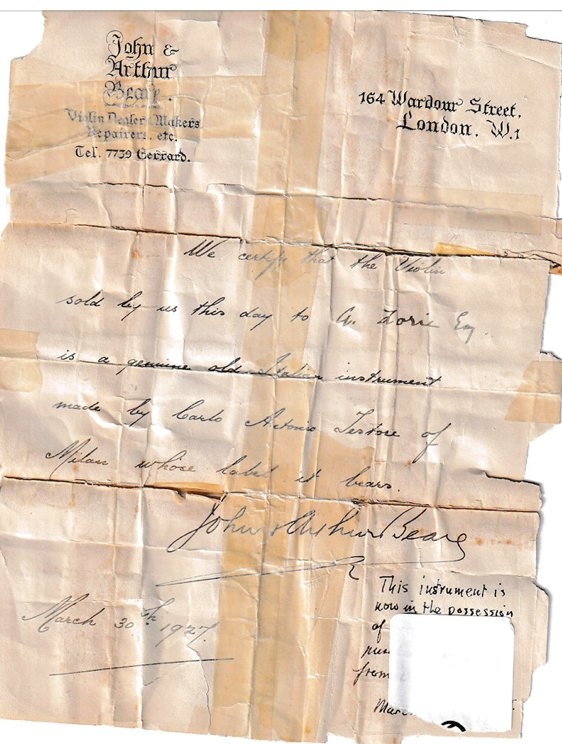 John &
Arthur
Beare.
Violin Dealers Makers
Repairers, etc.
Tel. 7739 Gerrard.
164 Wardour Street,
London, W.1
We certify that the Violin
sold by us this day to A. Esq.
is a genuine old Italian instrument
made by Carlo Antonio Testore of
Milan whose label it bears.
John & Arthur Beare
March 30th 1927
This instrument is
now in the possession
of
from